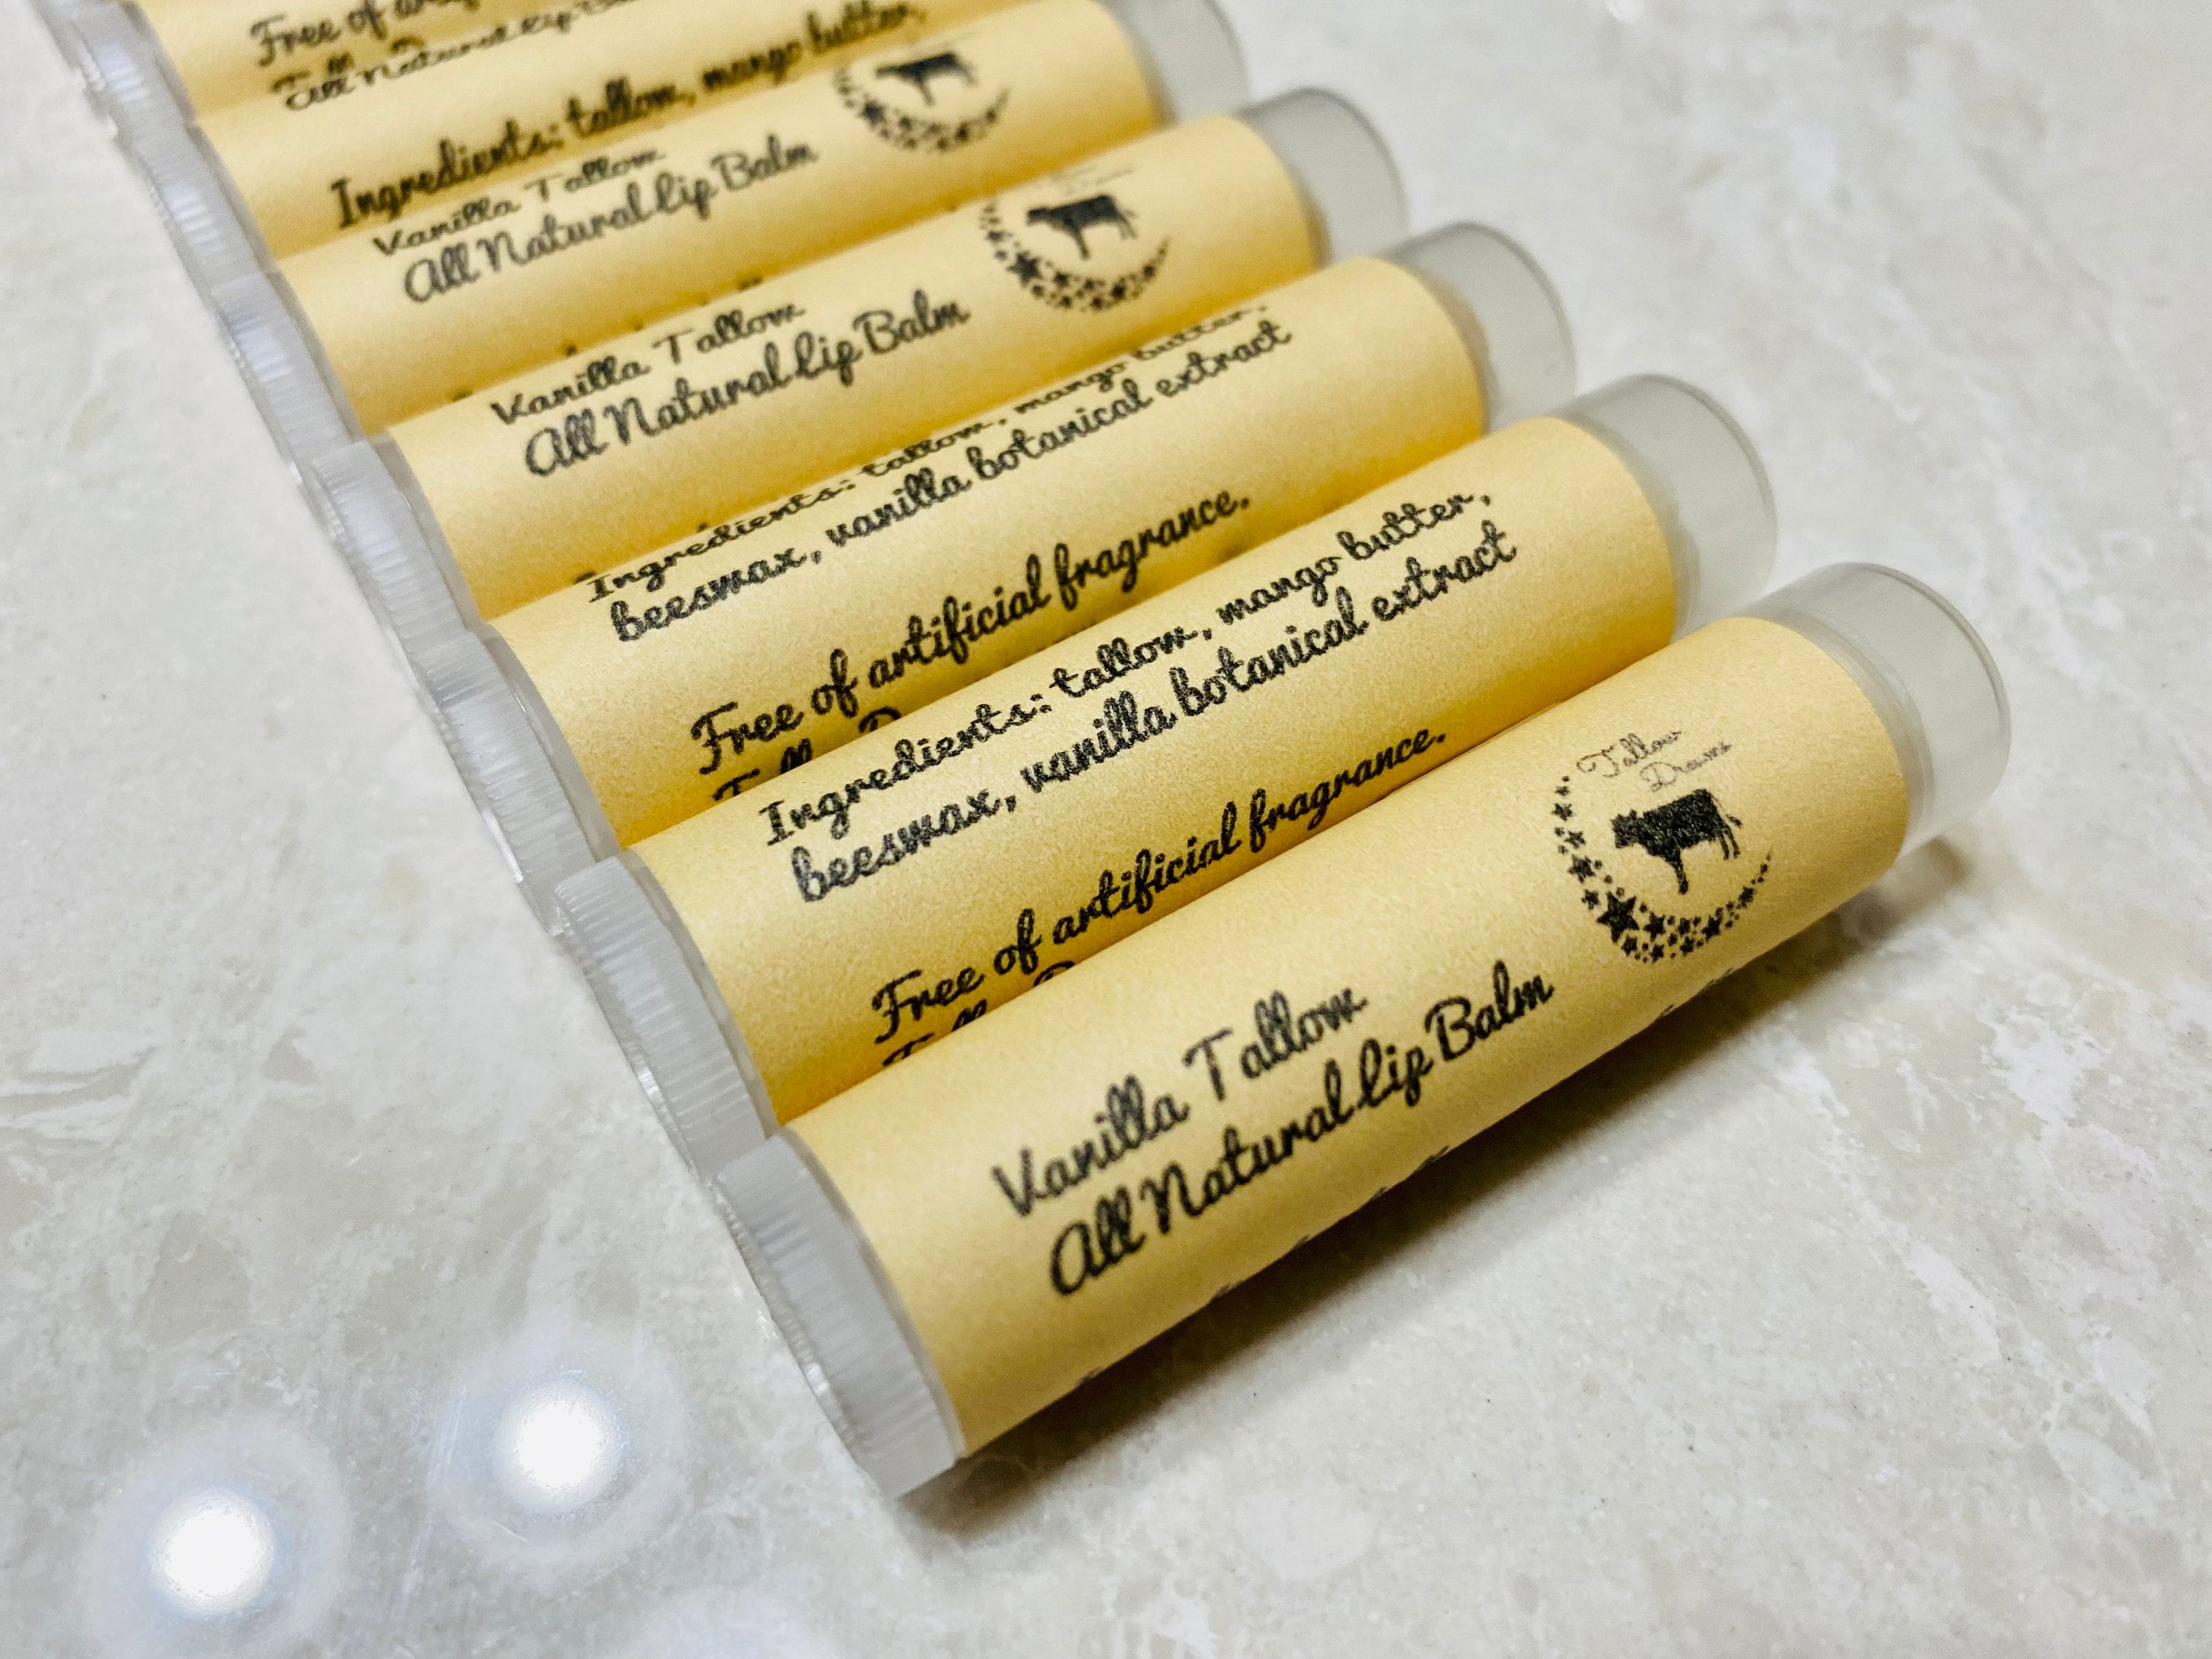 Free of
All Natural Lip
Ingredients: tallow, mango butter,
Vanilla Tallow
All Natural Lip Balm
Vanilla Tallow
All Natural Lip Balm
Ingredients: tallow, mango butter,
beeswax, vanilla botanical extract
Free of artificial fragrance.
Ingredients: tallow, mango butter,
beeswax, vanilla botanical extract
Free of artificial fragrance.
Tallow
Dreams
Vanilla Tallow
All Natural Lip Balm